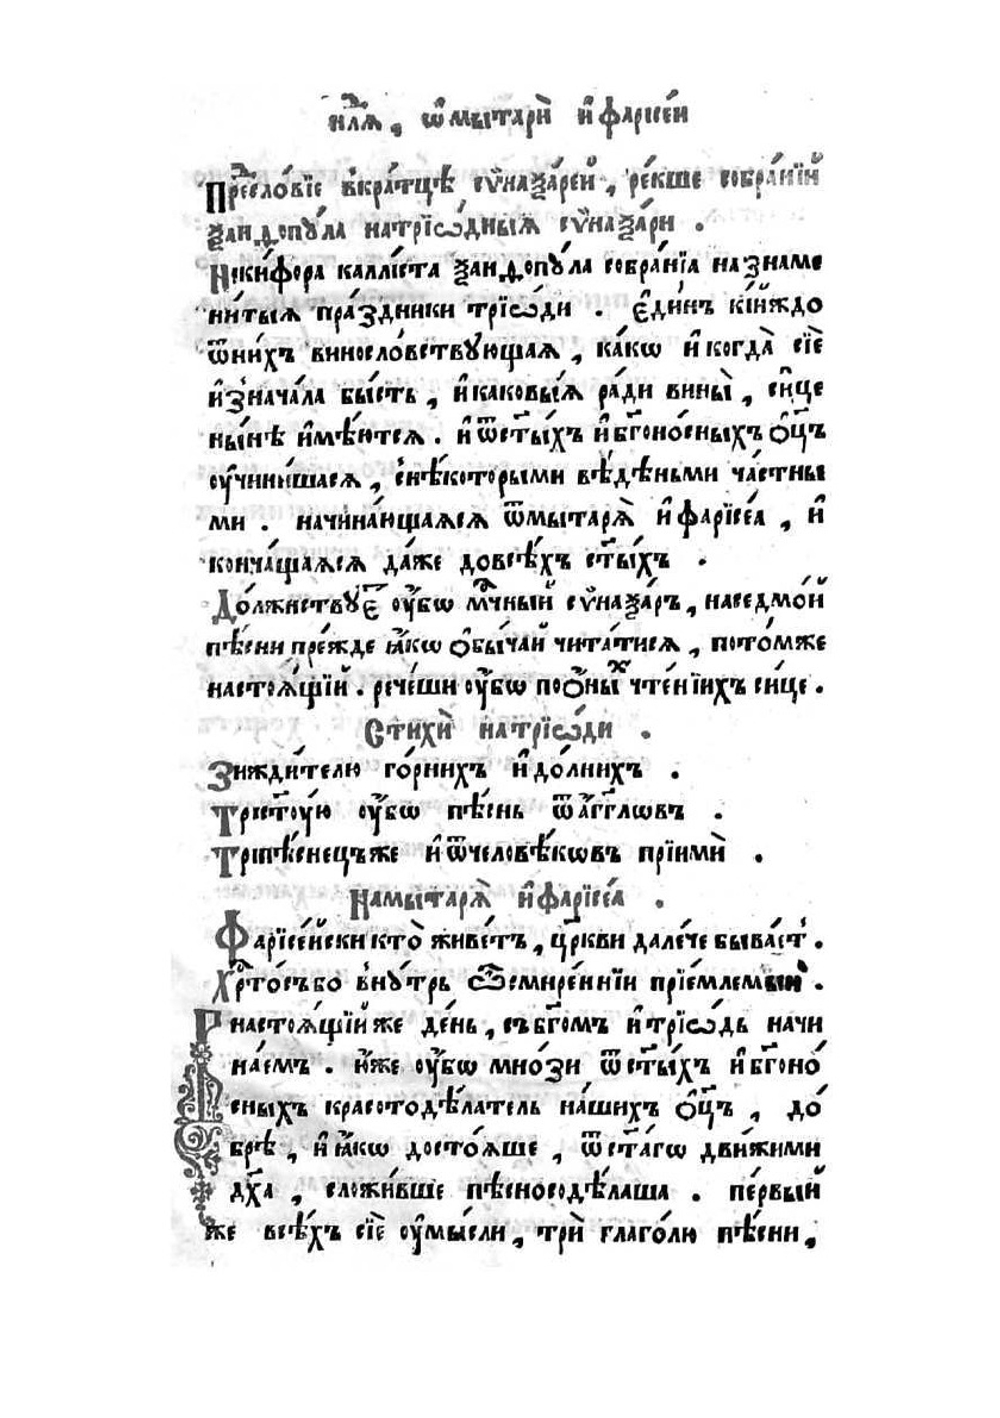 нлⷣѧ, ѡ҆мытарѝ и҆фарїсе́и
Пресло́вїе вкра́тцѣ сѷнаѯа́рей, ре́кше собра́нїй
ѯанѳопꙋ́ла натрїѡ́дныѧ сѷнаѯа́ри .
Ники́фора каллі́ста ѯанѳопꙋ́ла собра́нїѧназнаме
ни́тыѧ пра́здники трїѡ́ди . є҆ди́нъ кі́йждо
ѿни́хъ виносло́вствꙋющаѧ, ка́кѡ и҆когда̀ сїѐ
и҆знача́ла бы́сть, и҆каковы́ѧ ра́ди вины̀, си́це
ны́нѣ и҆мѣ́ютсѧ. и҆ѿст҃ы́хъ и҆бг҃оно́сныхъ ѻ҆ц҃ъ
ᲂу҆чини́шасѧ, снѣ́которыми вѣ́дѣньми ча́стны
ми . начина́ющаѧсѧ ѿмытарѧ̀ и҆фарїсе́а, и҆
конча́щаѧсѧ да́же довсѣ́хъ ст҃ы́хъ .
До́лжнствꙋеⷮ ᲂу҆́бѡ мч҃ный сѷнаѯа́ръ, наседмо́й
пѣ́сни пре́жде ꙗ҆́кѡ ѻ҆бы́чай чита́тисѧ, пото́мже
настоѧ́щїй. рече́ши ᲂу҆́бѡ поѻ҆́ныⷯ чте́нїихъ си́це.
Стихѝ натрїѡ́ди .
Зижди́телю го́рнихъ и҆до́лнихъ .
Трист҃ꙋ́ю ᲂу҆́бѡ пѣ́снь ѿа҆́гг҃лѡвъ .
Трипѣ́снецъже и҆ѿчеловѣ́кѡвъ прїимѝ .
Намытарѧ̀ и҆фарїсе́а .
Фарїсе́йски кто̀ живе́тъ, цр҃кви дале́че быва́етъ.
Хрⷭ҇то́събо внꙋ́трь смире́ннїи прїе́млемый .
настоѧ́щїйже де́нь, събг҃омъ и҆трїѡ́дь начи
на́емъ . ю҆́же ᲂу҆́бѡ мно́зи ѿст҃ы́хъ и҆бг҃оно́
сныхъ красотодѣ́латель на́шихъ ѻ҆ц҃ъ, до́
брѣ, и҆ꙗ҆́кѡ досто́ѧше, ѿст҃а́гѡ дви́жими
дх҃а, сложи́вше пѣсносодѣ́лаша . пе́рвый
же всѣ́хъ сїѐ ᲂу҆мы́сли, трѝ глаго́лю пѣ́сни,